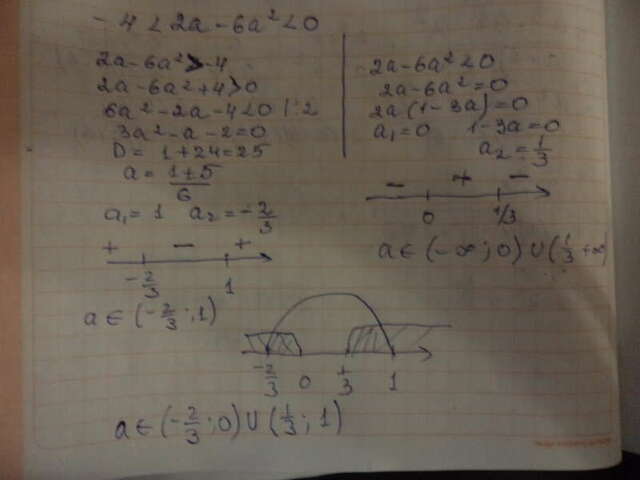 - 4 < 2a - 6a² < 0
2a - 6a² > -4
2a - 6a² + 4 > 0
6a² - 2a - 4 < 0 | : 2
3a² - a - 2 = 0
D = 1 + 24 = 25
a = (1 ± 5)/6
a₁ = 1 a₂ = -2/3
+ - +
-2/3 1
a ∈ (-2/3 ; 1)
2a - 6a² < 0
2a - 6a² = 0
2a (1 - 3a) = 0
a₁ = 0 1 - 3a = 0
a₂ = 1/3
- + -
0 1/3
a ∈ (-∞ ; 0) ∪ (1/3 +∞)
-2/3 0 1/3 1
a ∈ (-2/3 ; 0) ∪ (1/3 ; 1)